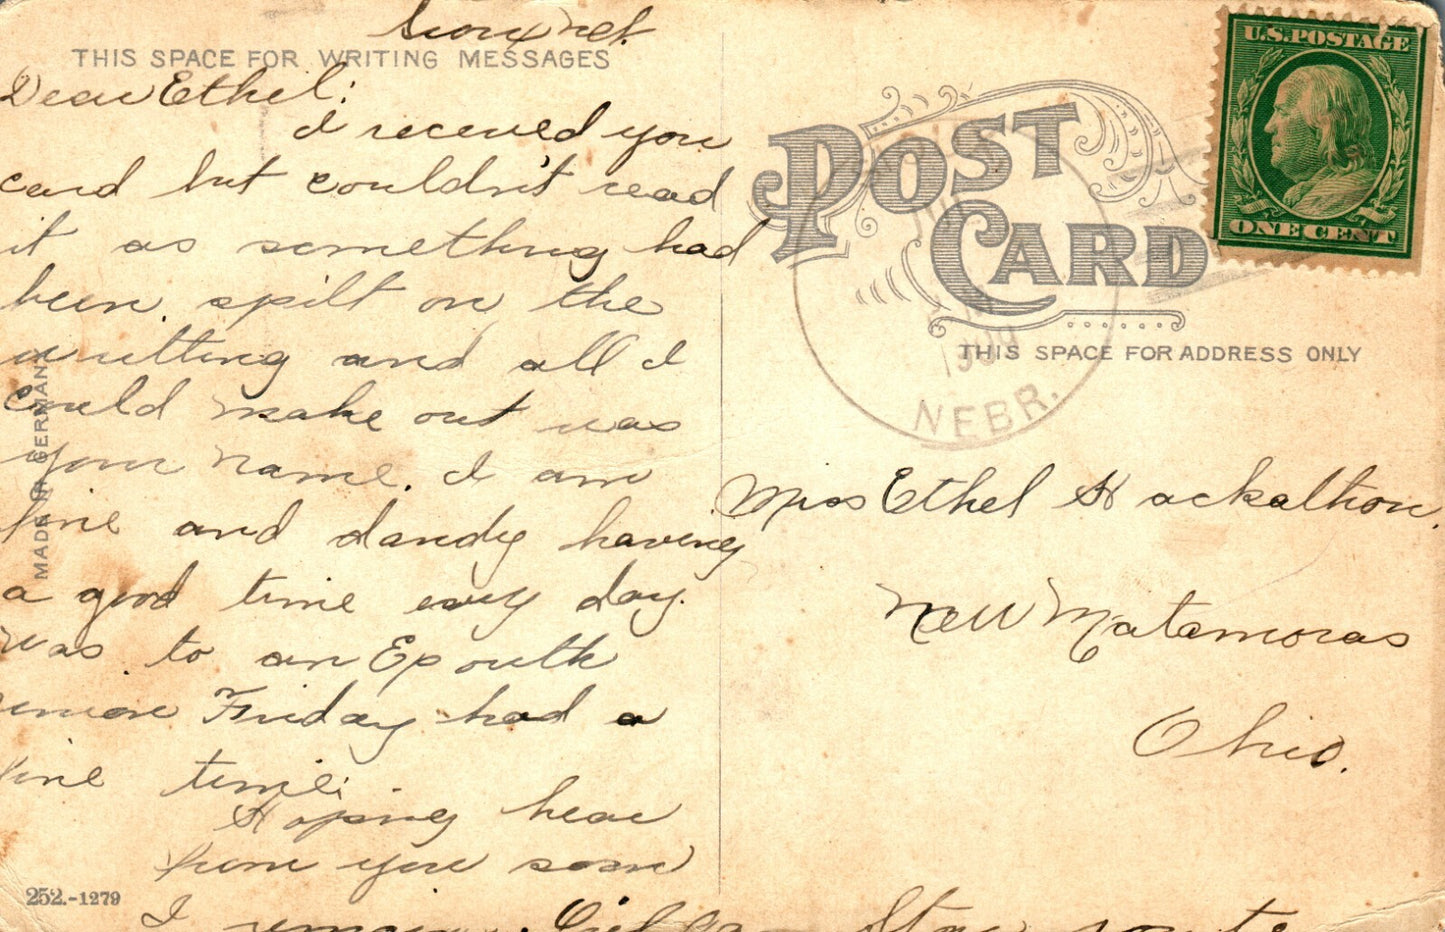 THIS SPACE FOR WRITING MESSAGES
Dear Ethel:
I received you
card but couldn't read
it as something had
been spilt on the
writting and all I
could make out was
your name. I am
fine and dandy having
a good time every day.
was to an Epouth
union Friday had a
fine time.
Hoping hear
from you soon
I remain
MADE IN GERMANY
252.-1279
U.S. POSTAGE
ONE CENT
POST CARD
THIS SPACE FOR ADDRESS ONLY
NEBR.
Miss Ethel Hackalthon.
New Matamoras
Ohio.